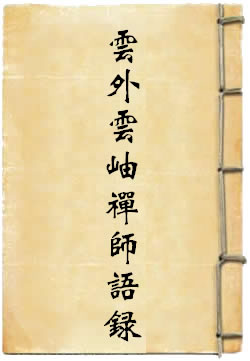 雲外雲岫禪師語録